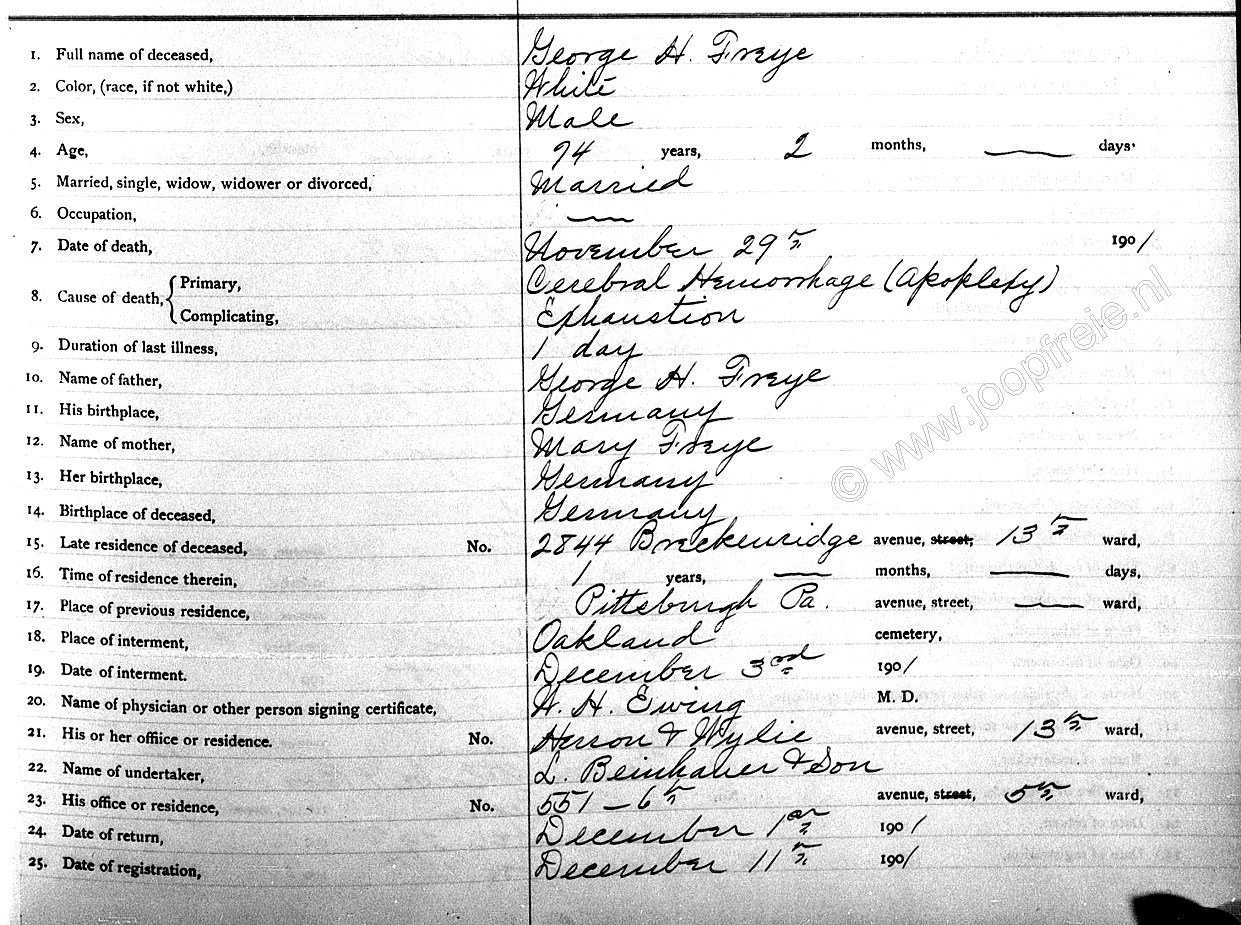 1. Full name of deceased, George H. Freye
2. Color, (race, if not white,) White
3. Sex, Male
4. Age, 74 years, 2 months, — days.
5. Married, single, widow, widower or divorced, Married
6. Occupation, —
7. Date of death, November 29th 1901
8. Cause of death, { Primary, Cerebral Hemorrhage (Apoplexy)
Complicating, Exhaustion
9. Duration of last illness, 1 day
10. Name of father, George H. Freye
11. His birthplace, Germany
12. Name of mother, Mary Freye
13. Her birthplace, Germany
14. Birthplace of deceased, Germany
15. Late residence of deceased, No. 2844 Breckenridge avenue, street, 13th ward,
16. Time of residence therein, 1 years, — months, — days,
17. Place of previous residence, Pittsburgh Pa. avenue, street, — ward,
18. Place of interment, Oakland cemetery,
19. Date of interment. December 3rd 1901
20. Name of physician or other person signing certificate, W. H. Ewing M. D.
21. His or her offiice or residence. No. Herron & Wylie avenue, street, 13th ward,
22. Name of undertaker, L. Beinhauer & Son
23. His office or residence, No. 551 – 6th avenue, street, 5th ward,
24. Date of return, December 1st 1901
25. Date of registration, December 11th 1901
© www.joopfreie.nl